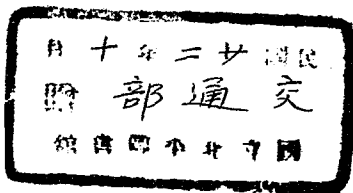 民國廿二年十月
交通部
國立北平圖書館